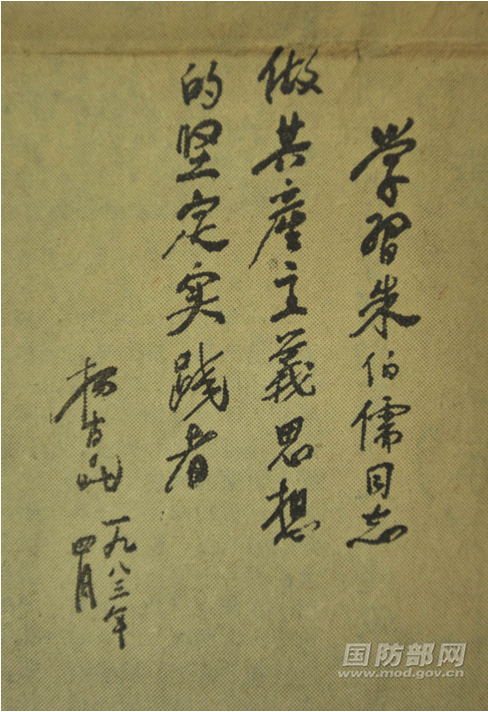 学習朱伯儒同志
做共產主義思想
的坚定实践者
杨尚昆
一九八三年
四月
国防部网
www.mod.gov.cn